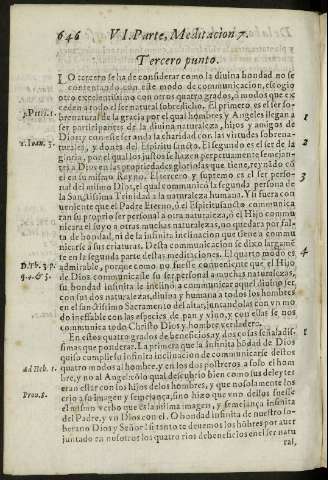 646 VI. Parte, Meditacion 7.
Tercero punto.
LO tercero se ha de considerar como la diuina bondad no se
contentando con este modo de communicacion, escogio
otro excelentissimo con otros quatro grados, ò modos que ex
ceden a todo el ser natural sobredicho. El primero, es el ser so-
brenatural de la gracia por el qual hombres y Angeles llegan a
ser participantes de la diuina naturaleza, hijos y amigos de
Dios: y con esse ser anda la charidad con las virtudes sobrena-
turales, y dones del Espiritu sancto. El segundo es el ser de la
gloria, por el qual los justos se hazen perpetuamente semejan-
tes a Dios en las propriedades gloriosas que tiene, reynado cō
el en su mismo Reyno. El tercero y supremo es el ser perso-
nal del mismo Dios, el qual communicò la segunda persona de
la Sanctissima Trinidad a la naturaleza humana. Y si fuera con
ueniente que el Padre Eterno, ò el Espiritu sancto communica
ran su proprio ser personal a otra naturaleza, ò el Hijo commu
nicara el suyo a otras muchas naturalezas, no quedara por fal-
ta de bondad, ni de la infinita inclinacion que tiene a commu
nicarse à sus criaturas. Desta communicacion se dixo largamē
te en la segunda parte destas meditaciones. El quarto modo es
admirable, porque como no fuesse conueniente que el Hijo
de Dios communicasse su ser personal a muchas naturalezas,
su bondad infinita le inclinò a communicar aquel diuino ser,
con sus dos naturalezas, diuina y humana a todos los hombres
en el sanctissimo Sacramento del altar, juntandolas con vn mo
do ineffable con las especies de pan y vino, y con ellas se nos
communica todo Christo Dios y hombre verdadero.
En estos quatro grados de beneficios, ay dos cosas señaladis-
simas que ponderar. La primera que la infinita bōdad de Dios
quiso cumplir su infinita inclinacion de communicarse destos
quatro modos al hombre, y en los dos postreros a solo el hom
bre, y no al Angel: cō lo qual descubrio bien como sus deleytes
eran estar con los hijos delos hombres, y que no solamente los
crio a su imagen y semejança, sino hizo que vno dellos fuesse
el mismo verbo que es la misma imagen, y semejança infinita
del Padre, y vn Dios con el. O bondad infinita de nuestro so-
berano Dios y Señor! si tanto te deuemos los hōbres por auer
juntado en nosotros los quatro rios de beneficios en el ser natu
ral,
2. Petri. 1.
1. Ioan. 3.
D. Th. 3. p.
ad Heb. 1.
Prou. 8.
1
2
3
4
1